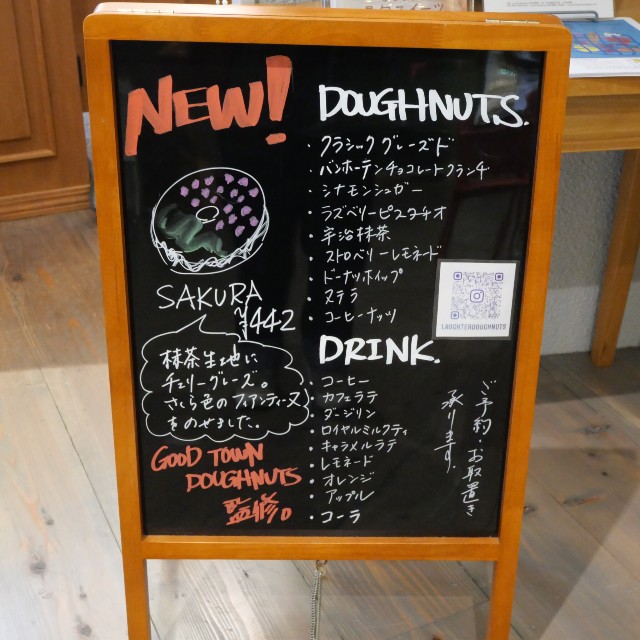 NEW!
SAKURA
¥442
抹茶生地に
チェリーグレーズ。
さくら色のフィアンティーヌ
をのせました。
GOOD TOWN
DOUGHNUTS
監修。
DOUGHNUTS.
・クラシックグレーズド
・バンホーテンチョコレートクランチ
・シナモンシュガー
・ラズベリーピスタチオ
・宇治抹茶
・ストロベリーレモネード
・ドーナツホイップ
・ヌテラ
・コーヒーナッツ
DRINK.
・コーヒー
・カフェラテ
・ダージリン
・ロイヤルミルクティ
・キャラメルラテ
・レモネード
・オレンジ
・アップル
・コーラ
LAUGHTERDOUGHNUTS
ご予約・お取置き
承ります。